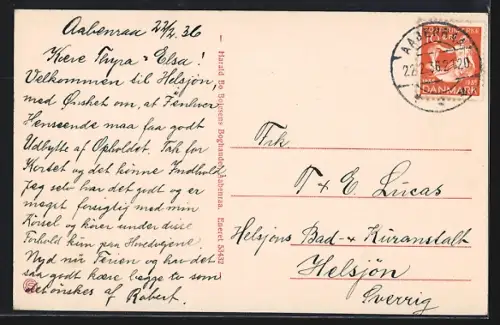 Aabenraa 22/2. 36
Kære Thyra & Elsa!
Velkommen til Helsjön,
med Ønsket om, at I enhver
Henseende maa faa godt
Udbytte af Opholdet. Tak for
Kortet og det kønne Indhold
Jeg selv har det godt og er
meget forsigtig med min
Kørsel og kører under disse
Forhold kun paa Hovedvejene.
Nyd nu Ferien og hav det
saa godt kære begge to som
det ønskes af Robert.
Harald Bo Bojesens Boghandel, Aabenraa. Eneret 53432
AABENRAA
22.2.36.
DANMARK
Frk
T & E. Lucas
Helsjöns Bad- & Kuranstalt
Helsjön
Sverrig